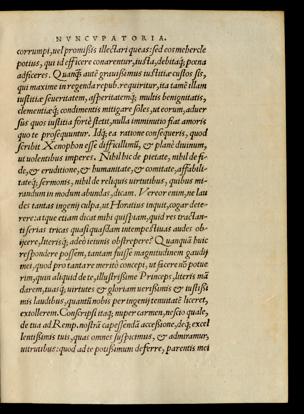 NVNCVPATORIA.
corrumpi, uel promißis illectari queas: sed eos mehercle
potius, qui id efficere conarentur, iusta, debitaq; pœna
adficeres. Quanq̃ autē grauißimus iustitiæ custos sis,
qui maxime in regenda repub. requiritur, ita tamē illam
iustitiæ seueritatem, asperitatemq; multis benignitatis,
clementiæq; condimentis mitigare soles, ut eorum, aduer
sus quos iustitia fortè stetit, nulla imminutio fiat amoris
quo te prosequuntur. Idq; ea ratione consequeris, quod
scribit Xenophon esse difficillimū, & planè diuinum,
ut uolentibus imperes. Nihil hic de pietate, nihil de fi-
de, & eruditione, & humanitate, & comitate, affabili-
tateq; sermonis, nihil de reliquis uirtutibus, quibus mi-
randum in modum abundas, dicam. Vereor enim, ne lau
des tantas ingenij culpa, ut Horatius inquit, cogar dete-
rere: atque etiam dicat mihi quispiam, quid res tractan-
ti serias tricas quasi quasdam intempestiuas audes ob-
ijcere, literisq; adeò ieiunis obstrepere? Quanquā huic
respondere possem, tantam fuisse magnitudinem gaudij
mei, quod pro tanto re meritò concepi, ut facere nō potue
rim, quin aliquid de te, illustrißime Princeps, literis mā
darem, tuasq; uirtutes & gloriam uerißimis & iustißi
mis laudibus, quantū nobis per ingenij tenuitatē liceret,
extollerem. Conscripsi itaq; nuper carmen, nescio quale,
de tua ad Remp. nostrā capessendā acceßione, deq; excel
lentißimis tuis, quas omnes suspicimus, & admiramur,
uirtutibus: quod ad te potißimum deferre, parentis mei